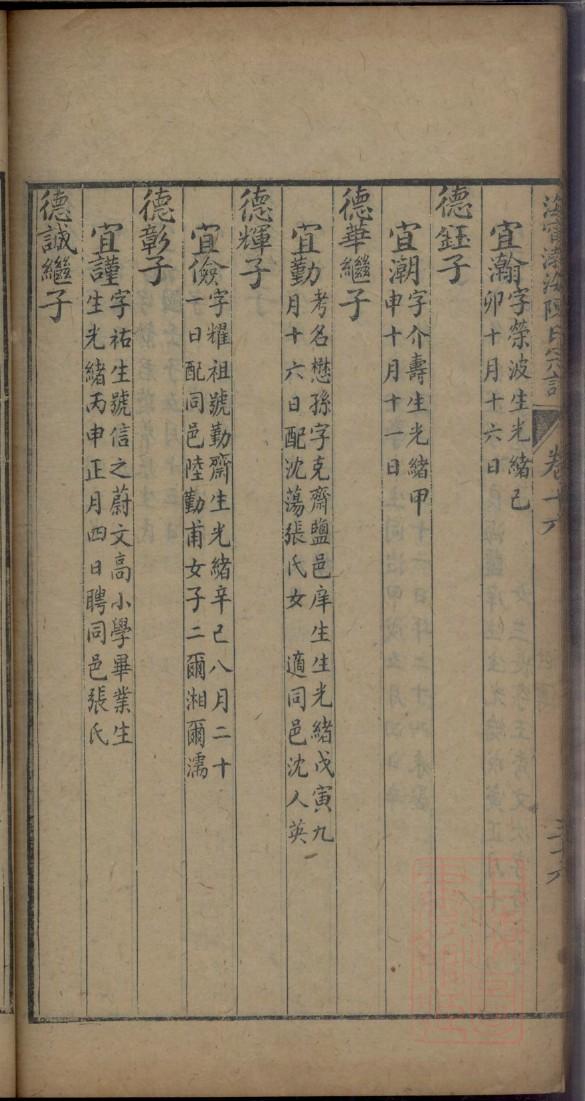 海寧渤海陳氏宗譜
卷十六
宜瀚
字榮波生光緒己
卯十月十六日
德鈺子
宜潮
字介壽生光緒甲
申十月十一日
德華繼子
宜勤
考名懋孫字克齋鹽邑庠生生光緒戊寅九
月十六日配沈蕩張氏女 適同邑沈人英
德輝子
宜儉
字耀祖號勤齋生光緒辛巳八月二十
一日配同邑陸勤甫女子二爾湘爾濡
德彰子
宜謹
字祐生號信之蔚文高小學畢業生
生光緒丙申正月四日聘同邑張氏
德誠繼子